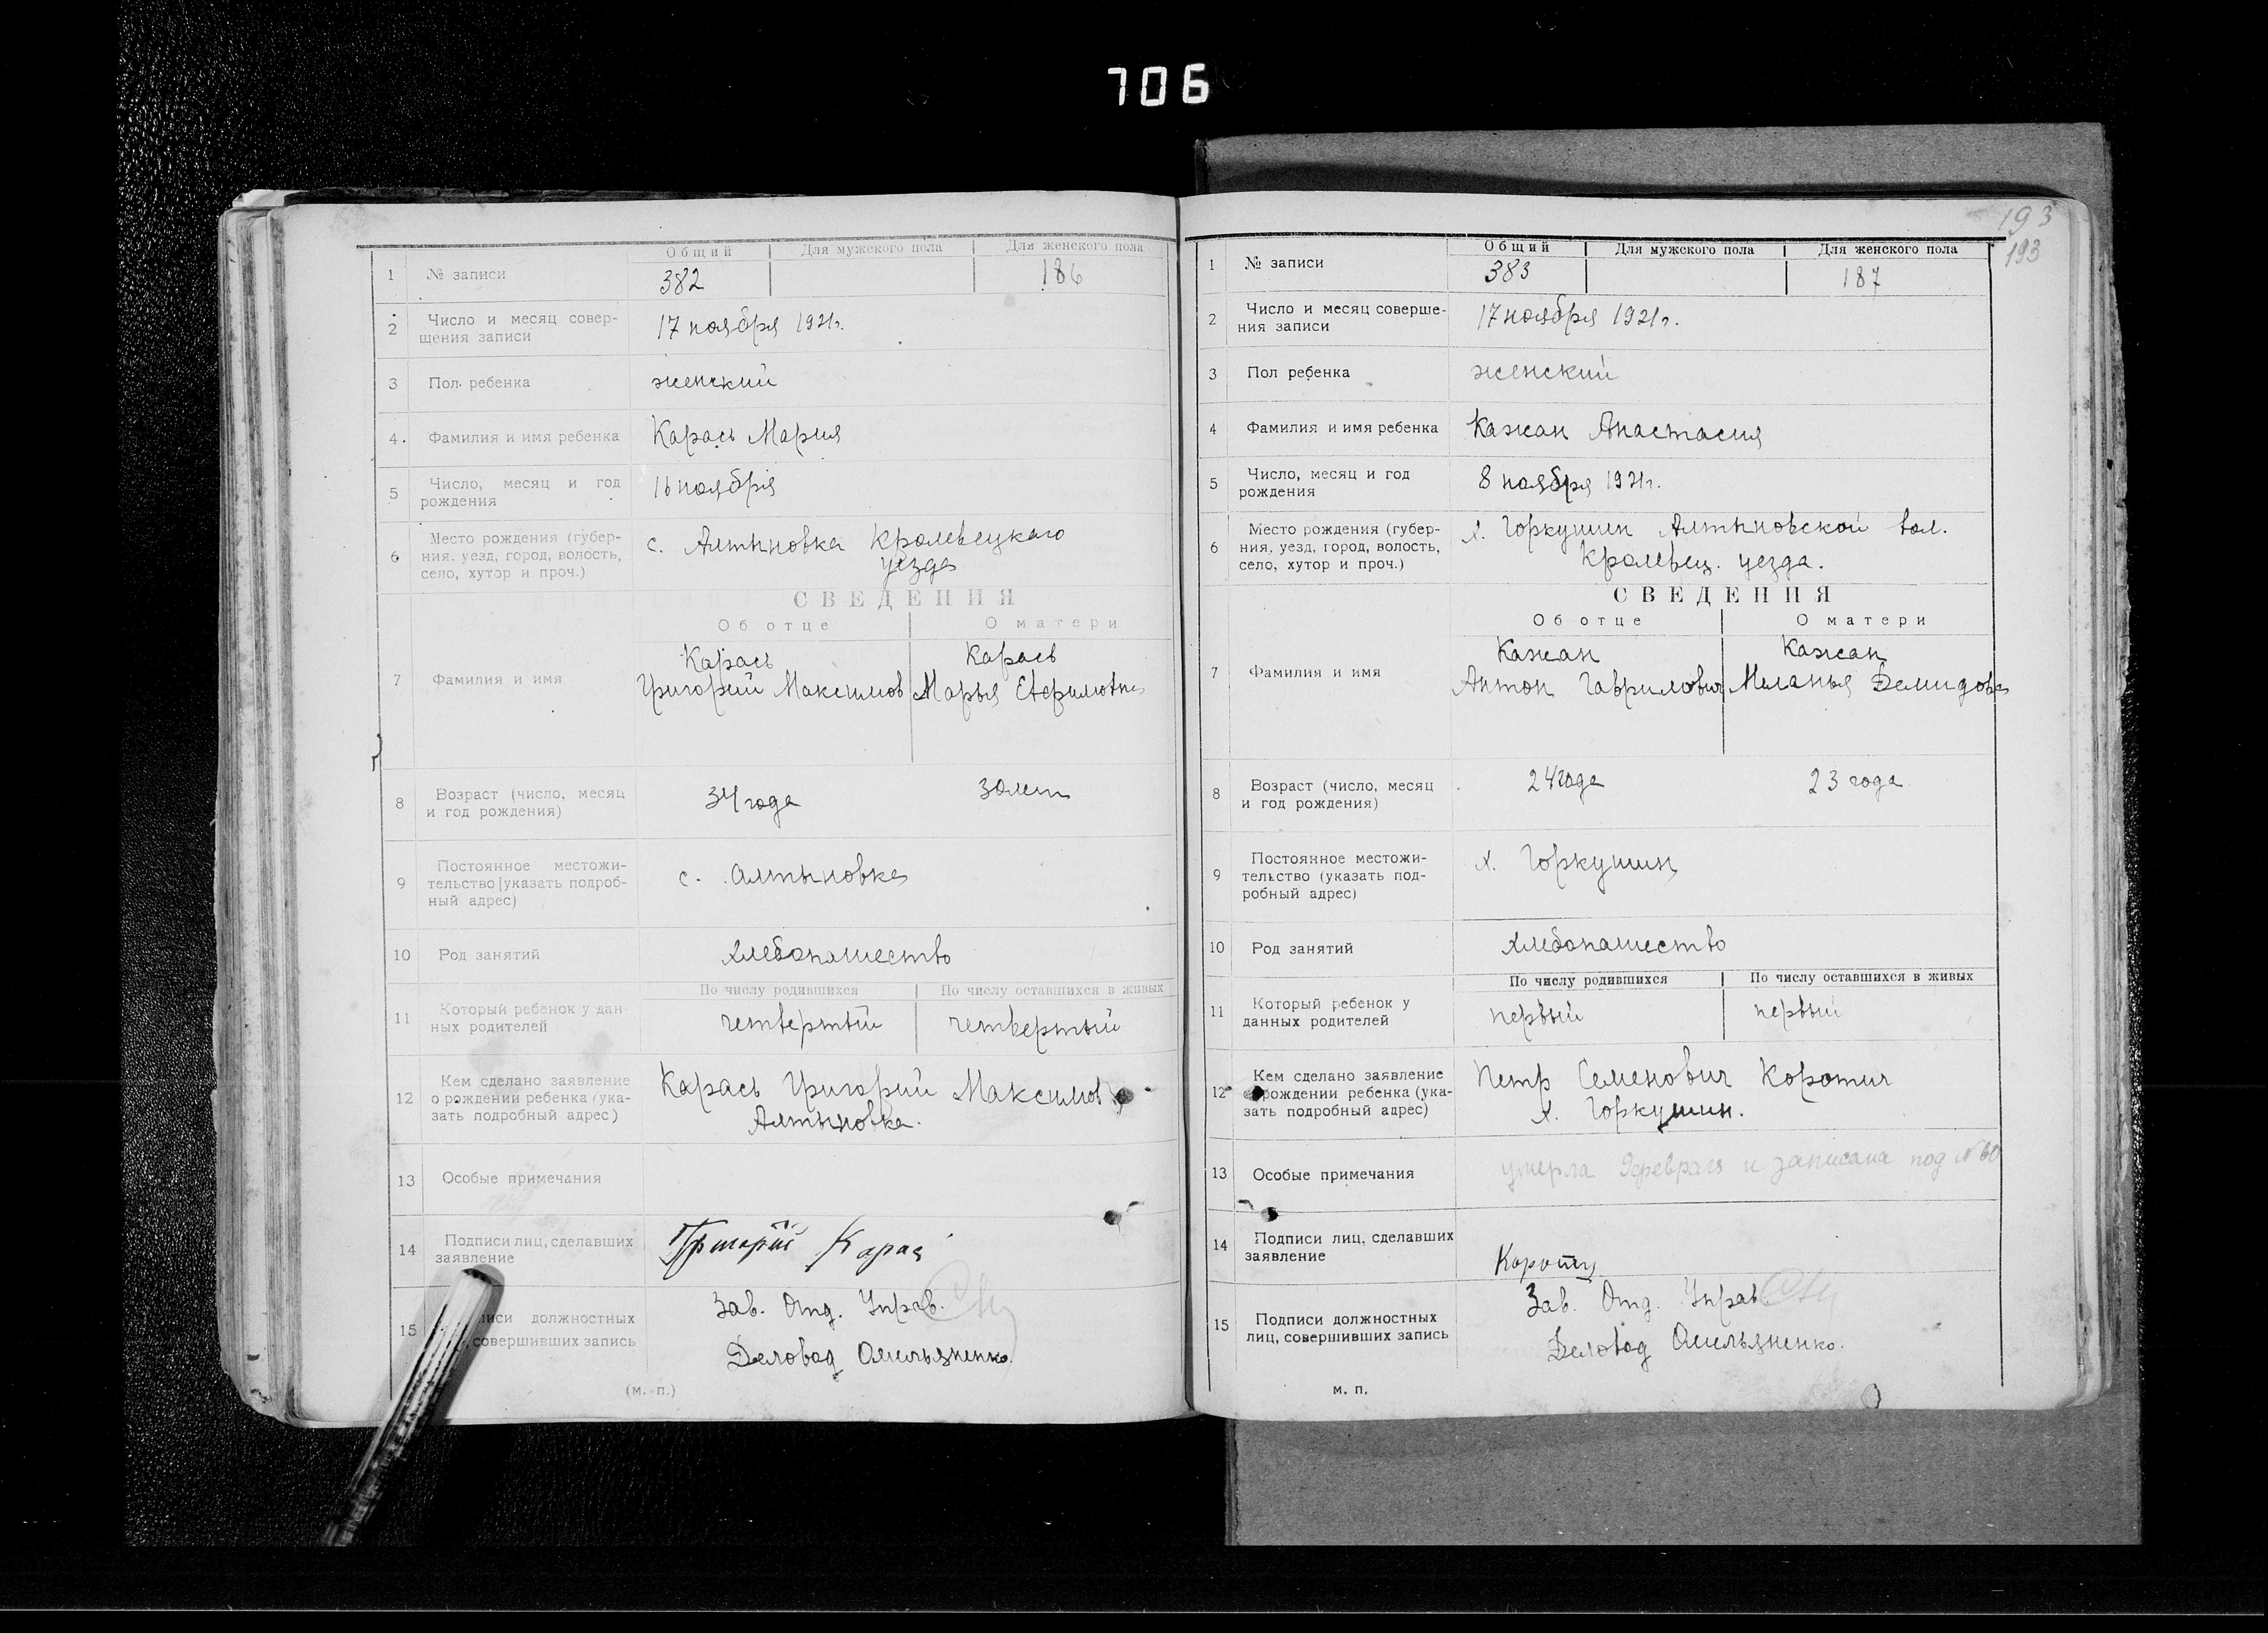 706
Общий Для мужского пола Для женского пола
1 № записи 382 186
2 Число и месяц совер-
шения записи
17 ноября 1921г.
3 Пол ребенка женский
4. Фамилия и имя ребенка Карась Мария
5 Число, месяц и год
рождения
16 ноября
6 Место рождения (губер-
ния, уезд, город, волость,
село, хутор и проч.)
с. Алтыновка Кролевецкаго
уезда
СВЕДЕНИЯ
Об отце О матери
7 Фамилия и имя
Карась Карась
Григорий Максимов Марья
8 Возраст (число, месяц
и год рождения)
34 года 30 лет
9 Постоянное местожи-
тельство [указать подроб-
ный адрес)
с. Алтыновка
10 Род занятий хлебопашество
По числу родившихся По числу оставшихся в живых
11 Который ребенок у дан-
ных родителей
четвертый четвертый
12 Кем сделано заявление
о рождении ребенка (ука-
зать подробный адрес)
Карась Григорий Максимов
Алтыновка.
13 Особые примечания
14 Подписи лиц, сделавших
заявление
Григорій Карась
15 должностных
совершивших запись
Зав. Отд. Управ.
Деловод Омельяненко.
(м. п.)
193
193
Общий Для мужского пола Для женского пола
1 № записи 383 187
2 Число и месяц соверше-
ния записи
17 ноября 1921г.
3 Пол ребенка женский
4 Фамилия и имя ребенка Кажан Анастасия
5 Число, месяц и год
рождения
8 ноября 1921г.
6 Место рождения (губер-
ния, уезд, город, волость,
село, хутор и проч.)
х. Горкушин Алтыновской вол.
Кролевец. уезда.
СВЕДЕНИЯ
Об отце О матери
7 Фамилия и имя
Кажан Кажан
Антон Гаврилович Меланья Демидова
8 Возраст (число, месяц
и год рождения)
24 года 23 года
9 Постоянное местожи-
тельство (указать под-
робный адрес)
х. Горкушин
10 Род занятий хлебопашество
По числу родившихся По числу оставшихся в живых
11 Который ребенок у
данных родителей
первый первый
12 Кем сделано заявление
рождении ребенка (ука-
зать подробный адрес)
Петр Семенович Коротич
х. Горкушин.
13 Особые примечания умерла 9 февраля и записана под № 60
14 Подписи лиц, сделавших
заявление
Коротич
15 Подписи должностных
лиц, совершивших запись
Зав. Отд. Управ.
Деловод Омельяненко.
м. п.